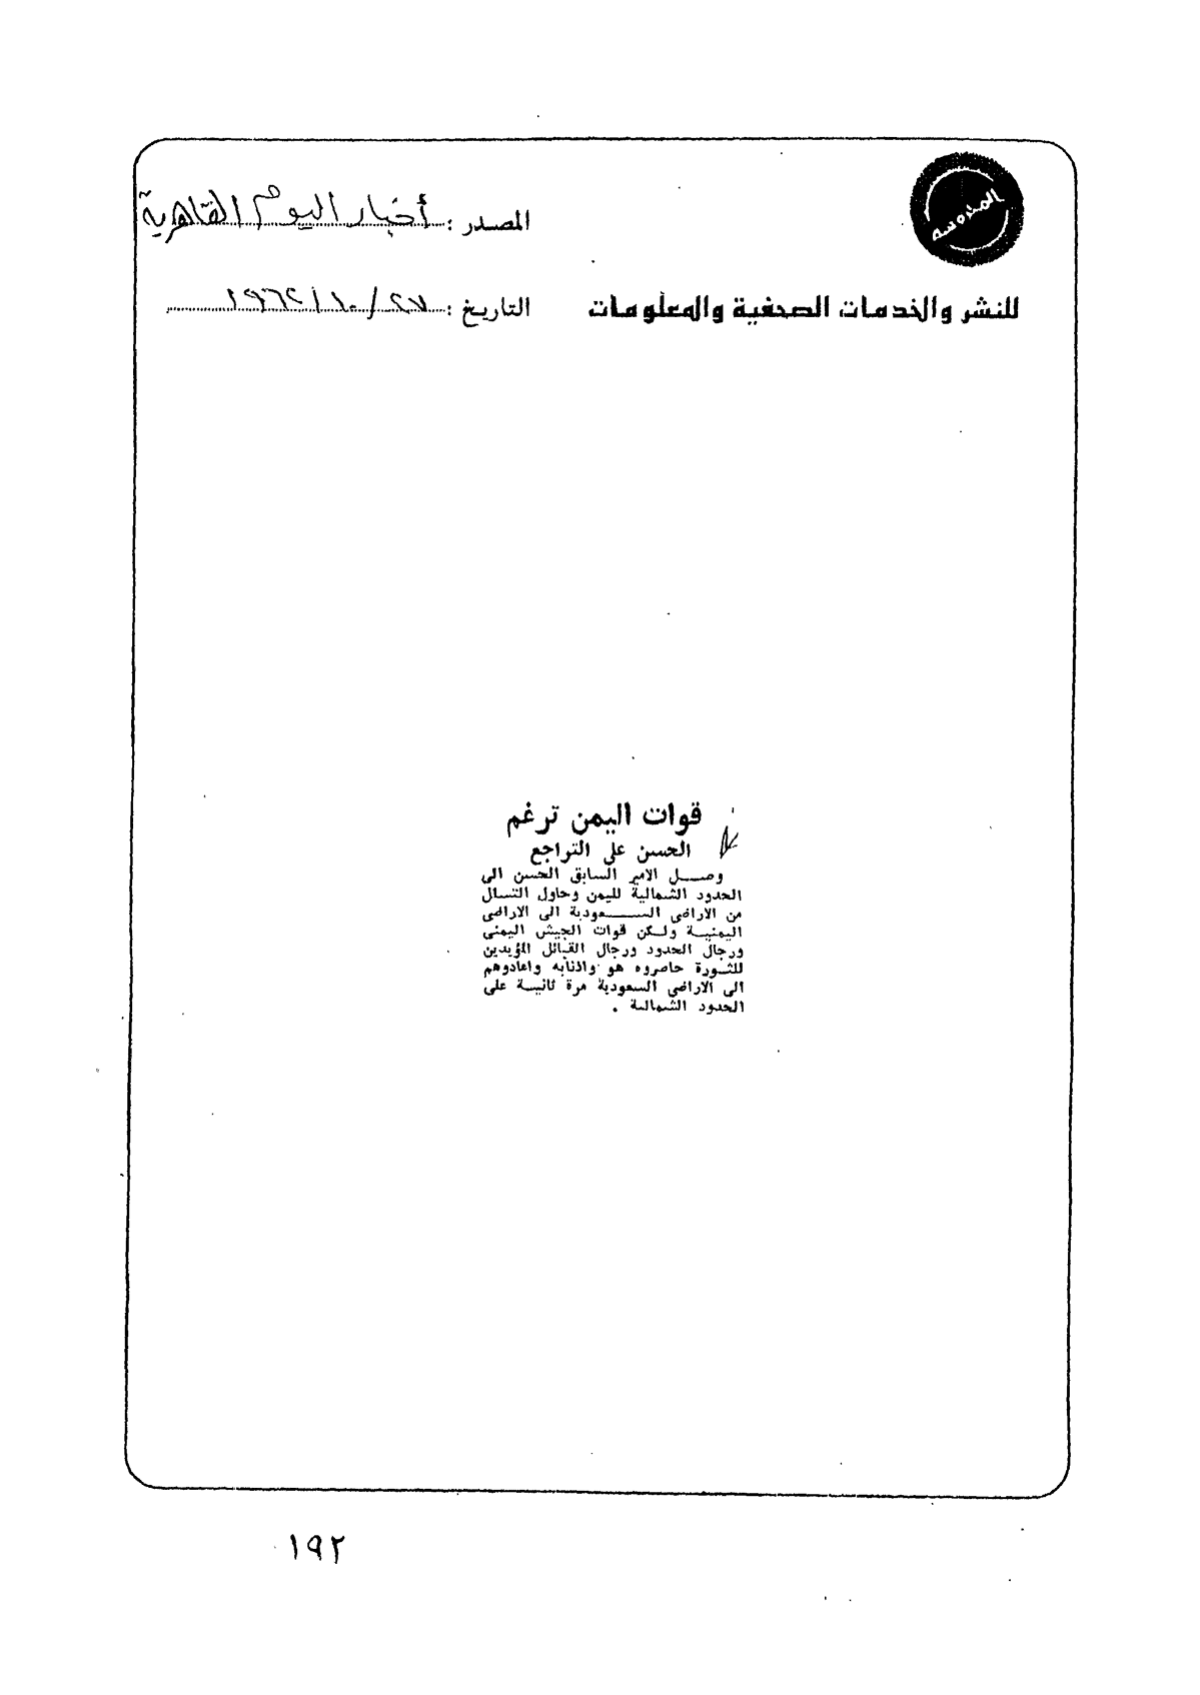 المحروسة
المصدر : أخبار اليوم القاهرية
للنشر والخدمات الصحفية والمعلومات
التاريخ : ٢٧/ ١٠/ ١٩٦٢
قوات اليمن ترغم
الحسن على التراجع
وصــل الامير السابق الحسن الى
الحدود الشمالية لليمن وحاول التسلل
من الاراضى الســـعودية الى الاراضى
اليمنيــة ولـكن قوات الجيش اليمنى
ورجال الحدود ورجال القبائل المؤيدين
للثـورة حاصروه هو واذنابه واعادوهم
الى الاراضى السعودية مرة ثانيــة على
الحدود الشمالية .
١٩٢